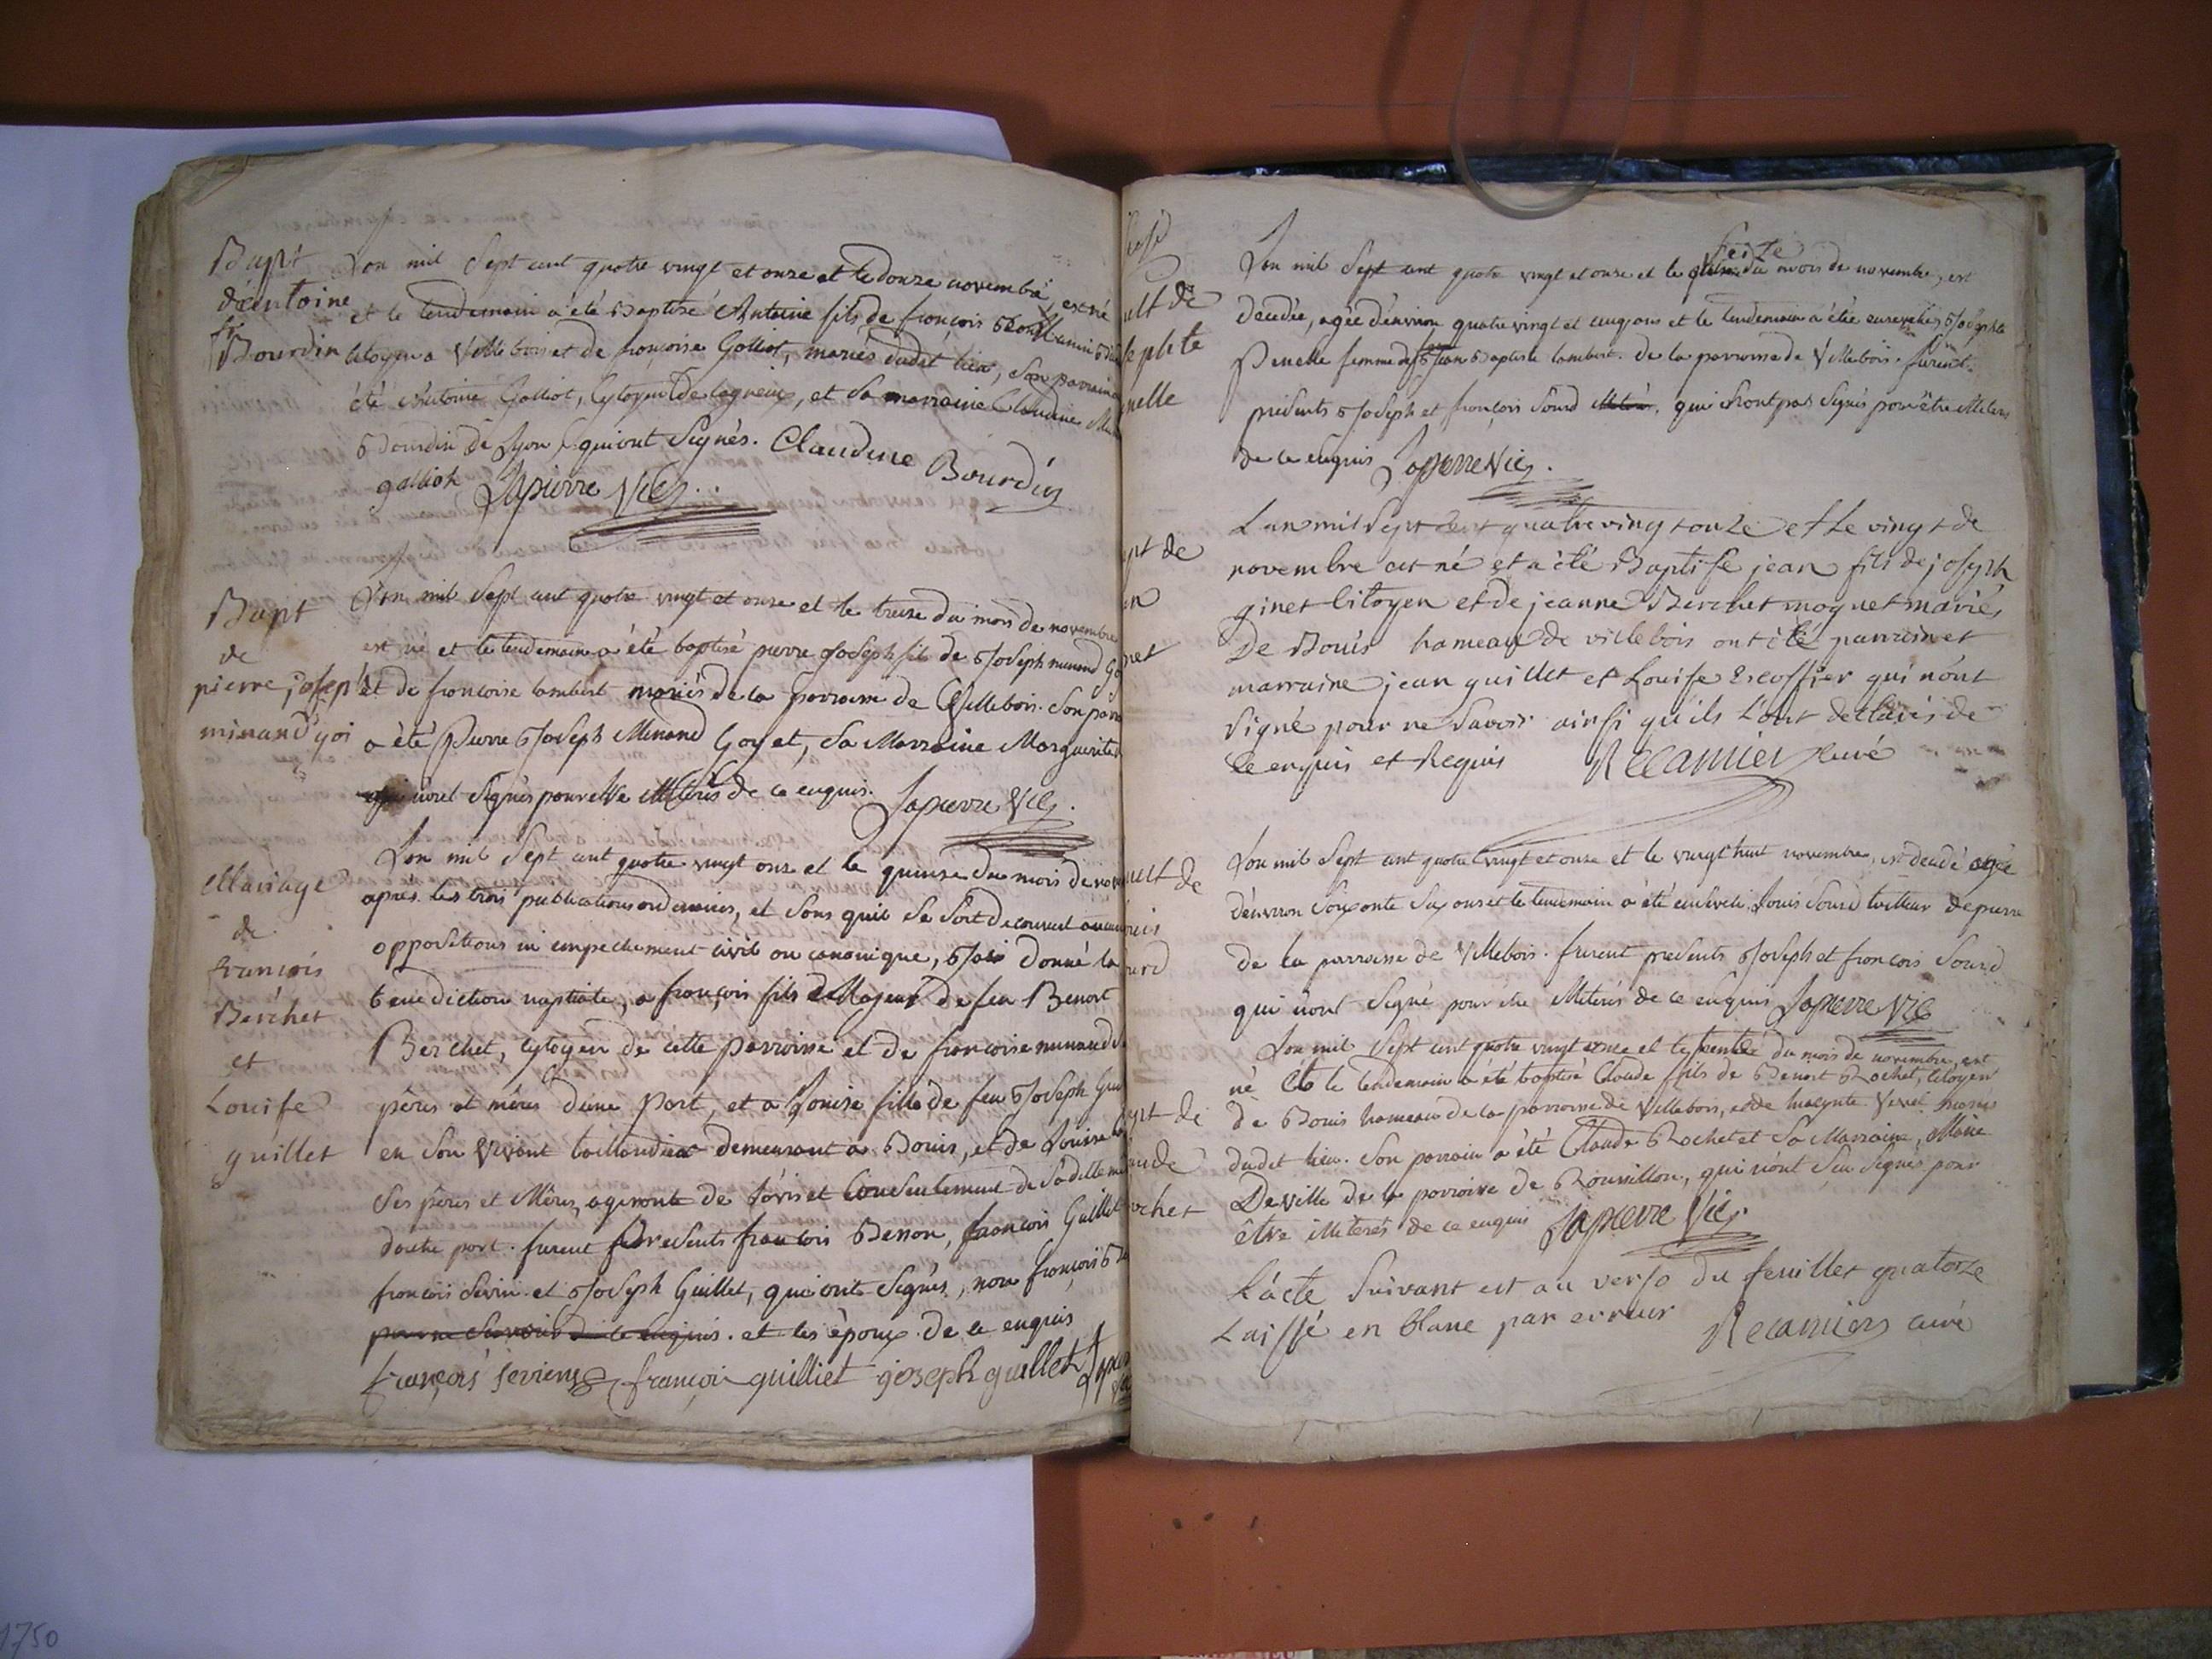 Bapt
d'antoine
Bourdin
L'an mil Sept cent quatre vingt et onze et le douze novembre, est né
et le lendemain a été Baptisé Antoine fils de françois
Citoyen a Villebois et de françoise Golliot, mariés dudit lieu, Son parrain a
été Antoine Golliot, Cytoyen de lagneux, et Sa marraine Claudine
Bourdin de Lyon qui ont Signés. Claudine
Bourdin
golliot Lapierre Vic.
Bapt
de
pierre joseph
minand goi
L'an mil Sept cent quatre vingt et onze et le treize du mois de novembre
est né et le lendemain a été baptisé pierre joseph fils de joseph minand
et de francoise lambert mariés de la parroisse de Villebois. Son parrain
a été Pierre joseph Minand Goyet, Sa Marraine Marguerite
n'ont Signés pour être illiterés de ce enquis. Lapierre Vic.
Mariage
de
françois
Berchet
et
Louise
guillet
L'an mil Sept cent quatre vingt onze et le quinze du mois de
après les trois publications ordinaires, et Sans quil Se Soit decouvert aucun
oppositions ni empechement civil ou canonique, j'ai donné la
benediction nuptiale, a françois fils Majeur de feu Benoit
Berchet, cytoyen de cette parroisse et de francoise minand
pères et mères d'une part, et a Louise fille de feu joseph
en Son vivant taillandier demeurant a Bouis, et de Louise
Ses pères et Mères, agissante de l'avis et Consentement de Sadite
d'autre part. furent presents françois Besson, francois Guillet
françois Sevin et joseph Guillet, qui ont Signés, non françois
et les époux de ce enquis
françois françois guilliet joseph guillet
L'an mil Sept cent quatre vingt et onze et le Seize du mois de novembre, est
decedée, agée d'environ quatre vingt et cinq ans et le lendemain a étée ensevelie, josephte
Penelle femme de jean Baptiste lambert. de la parroisse de Villebois. furent
présents joseph et françois Sourd qui n'ont pas Signés pour être illiterés
de ce enquis Lapierre Vic.
L'an mil Sept Cent quatre vingt onze et le vingt de
novembre est né et a été Baptisé jean fils de joseph
ginet Citoyen et de jeanne Berchet moquet mariés
De Bouis hameau de villebois ont été parrain et
marraine jean guillet et Louise Escoffier qui n'ont
Signé pour ne Savoir ainsi qu'ils L'ont declarés de
Ce enquis et Requis Recamier curé
L'an mil Sept cent quatre vingt et onze et le vingt huit novembre, est decedé agé
d'environ Soixante Six ans et le lendemain a été enseveli Louis Sourd tailleur de pierre
de la parroisse de Villebois. furent presents joseph et françois Sourd
qui n'ont Signé pour être illiterés de ce enquis Lapierre Vic
L'an mil Sept cent quatre vingt onze et le trente du mois de novembre, est
né Et le lendemain a été baptisé Claude fils de Benoit Rochet, Citoyen
de Bouis hameau de la parroisse de Villebois, et de hiacynte mariés
dudit lieu. Son parrain a été Claude Rochet et Sa Marraine, Marie
Deville de la parroisse de Rossillon, qui n'ont Signés pour
être illiterés de ce enquis Lapierre Vic.
L'acte Suivant est au verso du feuillet quatorze
Laissé en blanc par erreur Recamier curé
1750